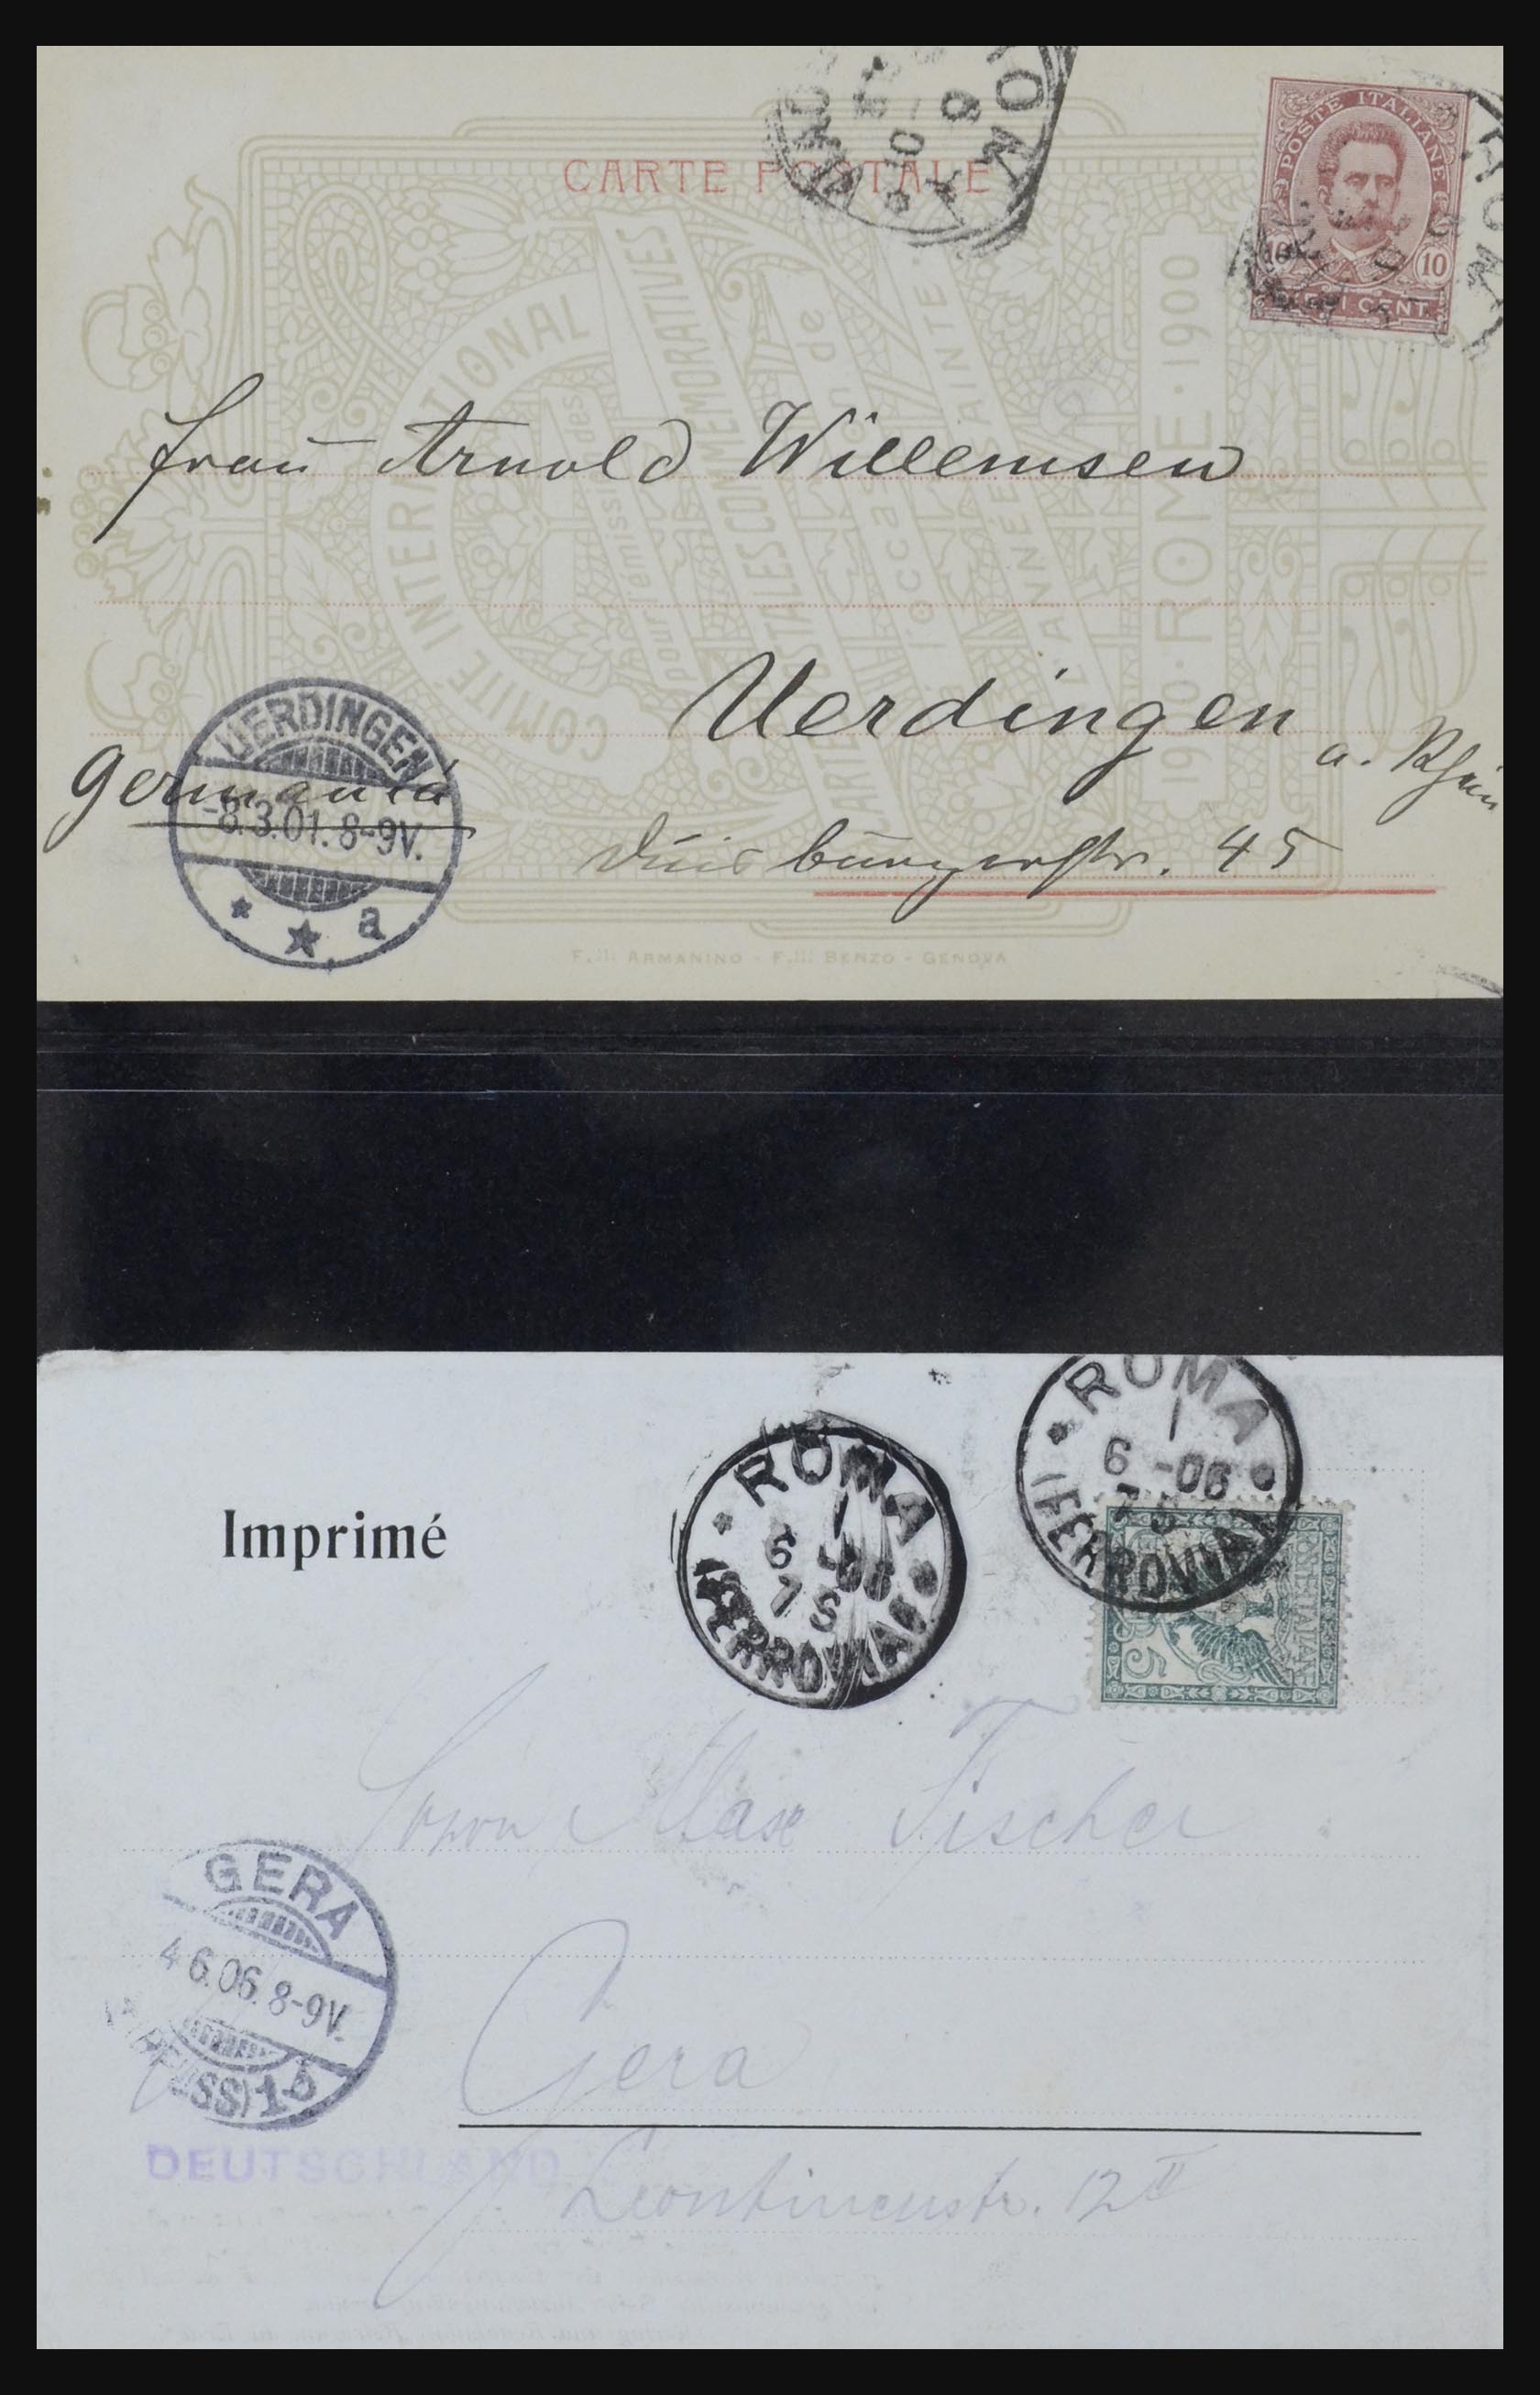 CARTE POSTALE
ROMA
POSTE ITALIANE
10 10
CENT.
ROMA
COMITÉ INTERNATIONAL
pour l'émission des
POSTALES COMMEMORATIVES
à l'occasion de
L'ANNÉE SAINTE
1900 · ROME · 1900
Frau Arnold Willemsen
Uerdingen a. Rhein
Germania
Duisburgerstr. 45
UERDINGEN
-8.3.01. 8-9V.
* * a
F.lli ARMANINO - F.lli BENZO - GENOVA
Imprimé
ROMA
6 - 06
7 S
(FERROVIA)
ROMA
6 -06
7 S
(FERROVIA)
5
Herrn Max Fischer
GERA
4 6.06. 8-9V.
(REUSS) 1b
Gera
DEUTSCHLAND
Leontinenstr. 12 II